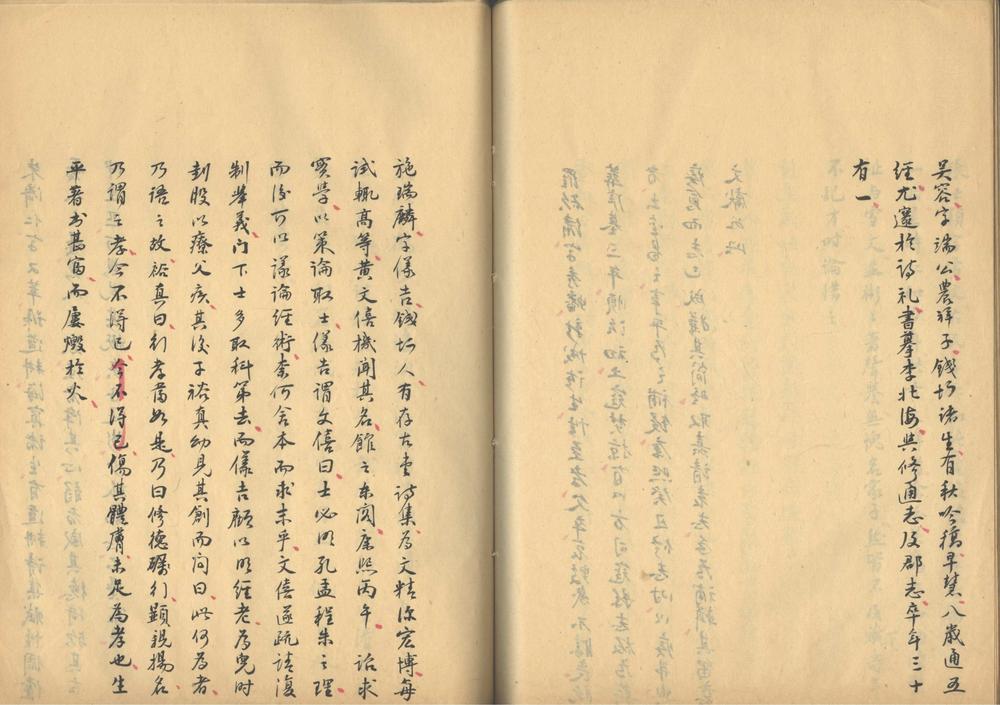 吴容字瑞公農祥子錢圹諸生有秋吟稿早慧八歲通五
經尤邃於詩礼書摹李北海與修通志及郡志卒年三十
有一
施瑞麟字儀吉錢圹人有存古堂詩集為文精深宏博每
試輒高等黄文僖機聞其名館之东阁康熙丙午 诏求
實學以策論取士儀吉謂文僖曰士必明孔孟程朱之理
而後可以議論經術柰何舍本而求末乎文僖遂疏请復
制舉義门下士多取科第去而儀吉顧以明經老為兒时
刲股以療父疾其後子裕真幼見其創而问曰此何為者
乃語之故裕真曰行孝當如是乃曰修德礪行顯親揚名
乃謂之孝今不得已今不得已傷其體膚未足為孝也生
平著书甚富而屡燬於火